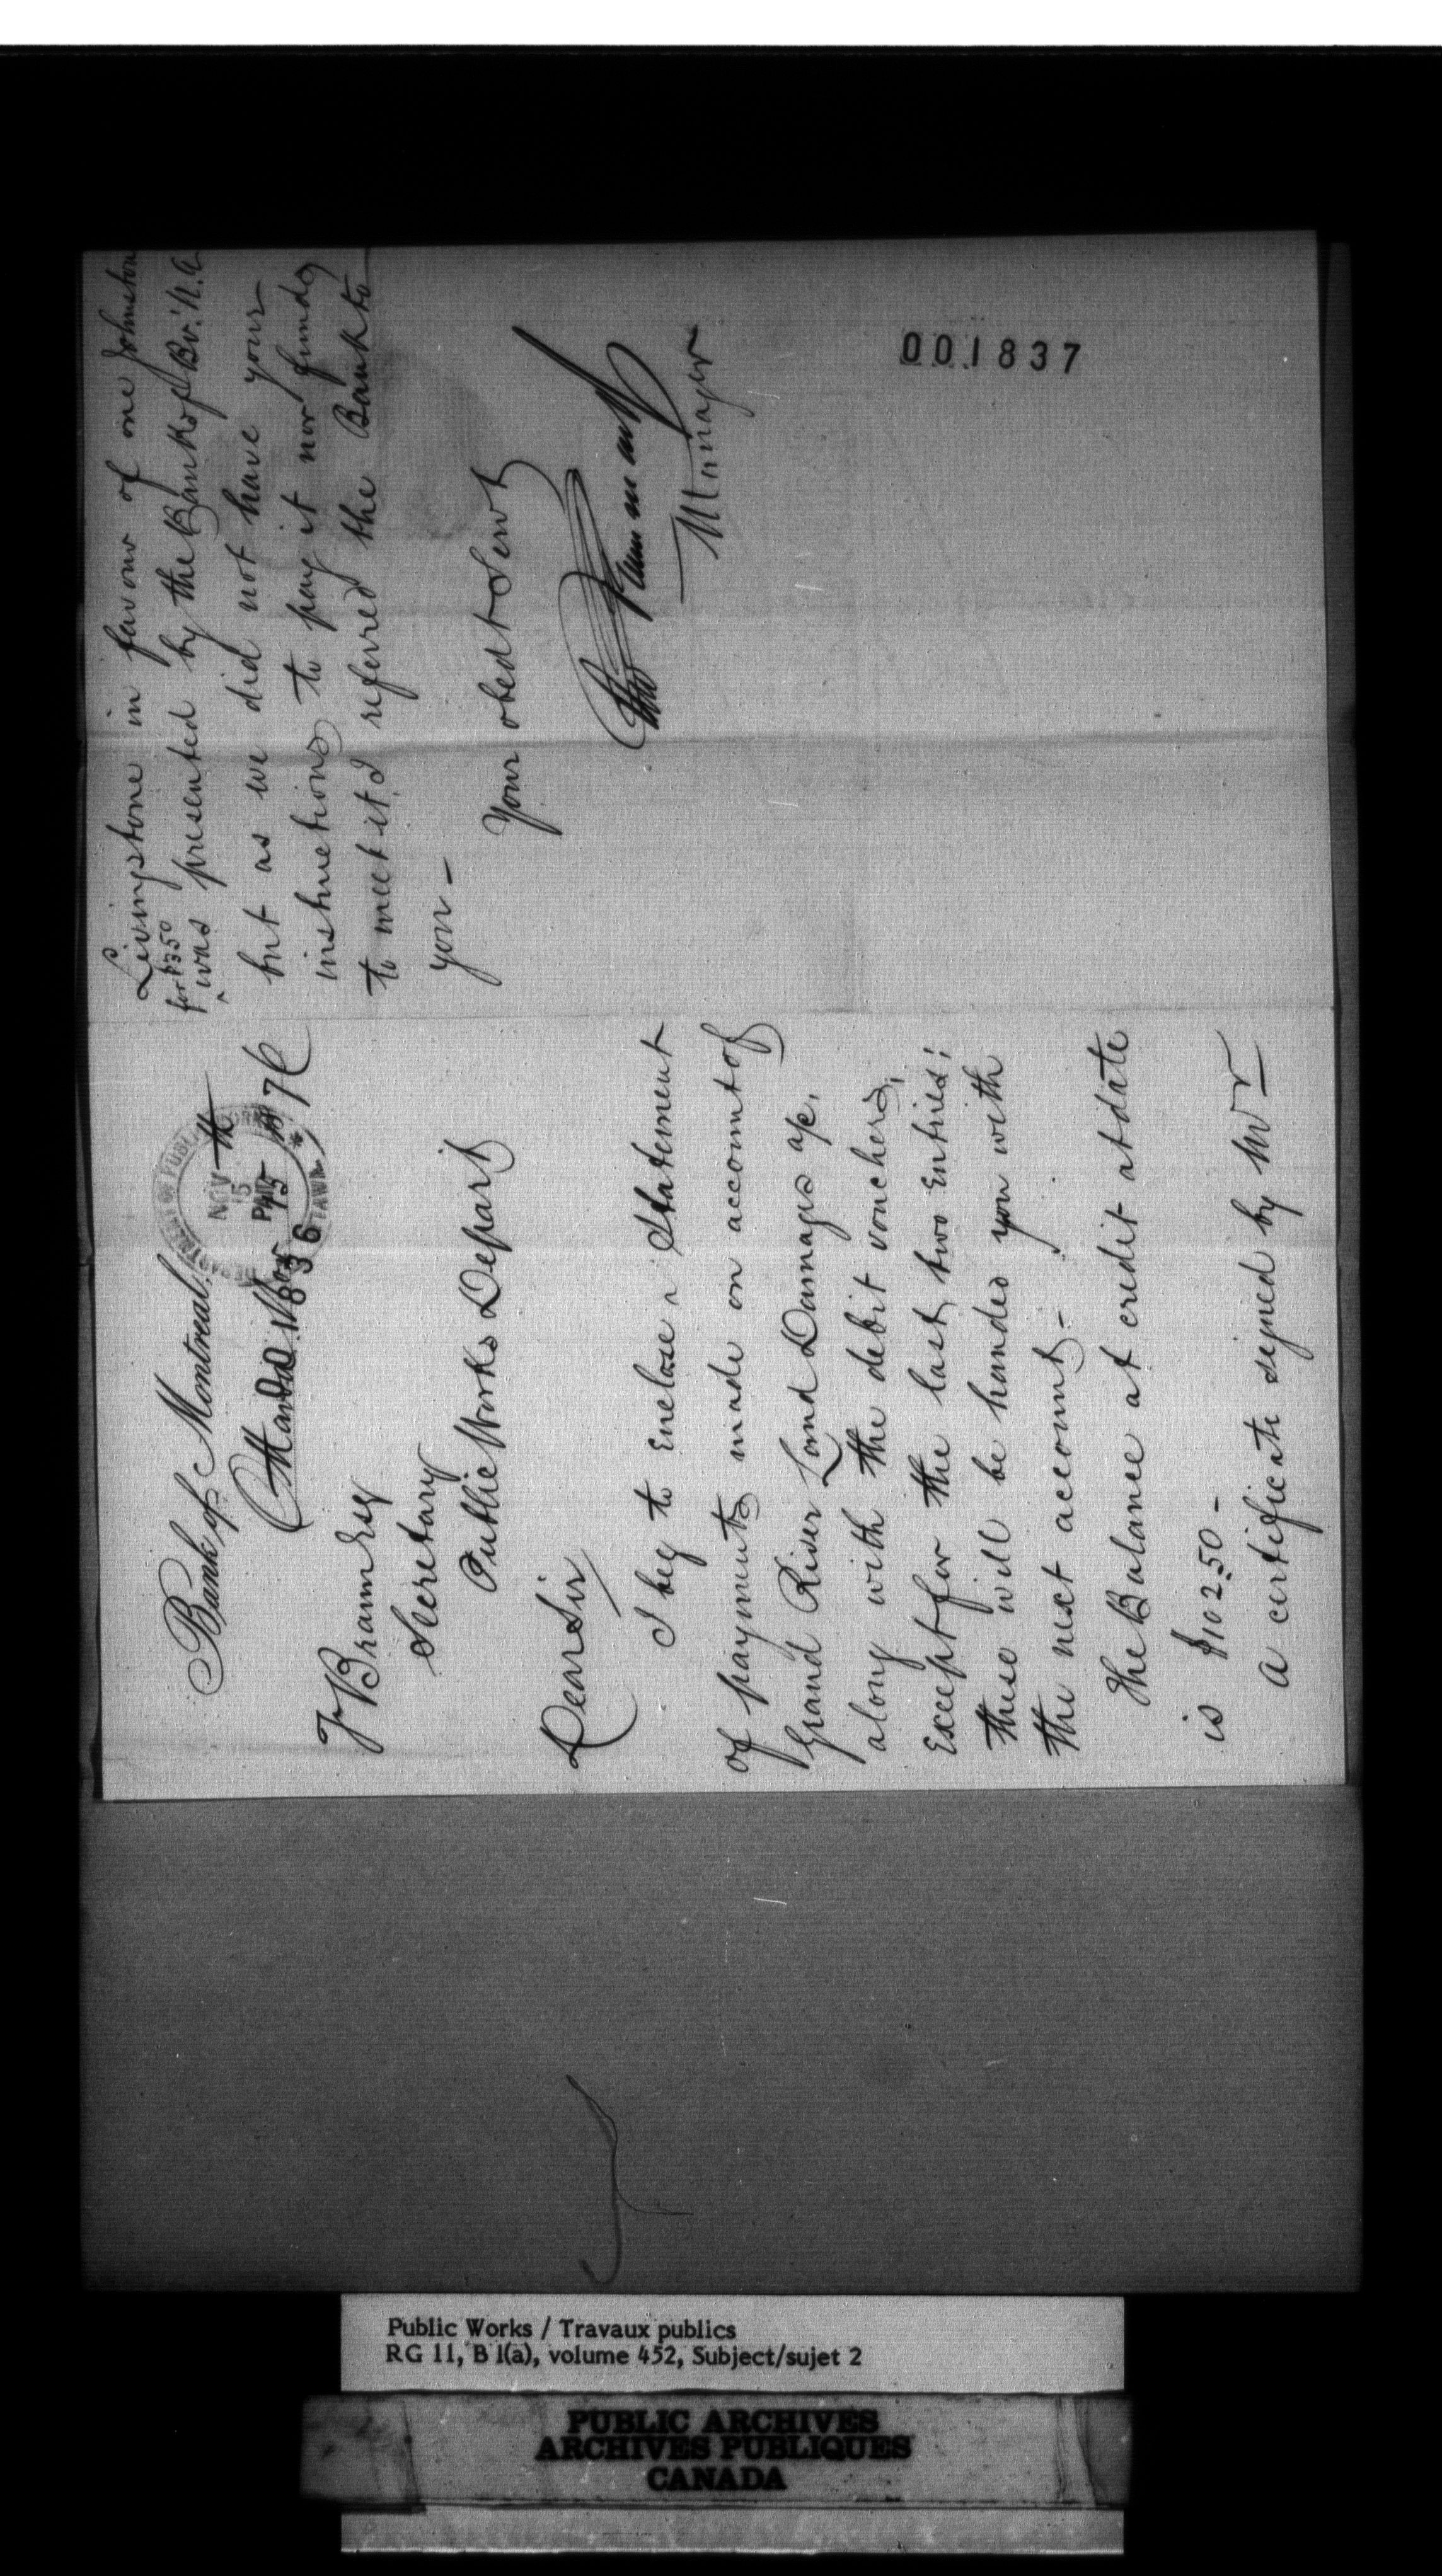 Bank of Montreal
Ottawa Nov 15th 187
DEPARTMENT OF PUBLIC WORKS
NOV
15
OTTAWA
001836
F Braun Esq
Secretary
Public Works Depart
Dear Sir
I beg to Enclose a Statement
of payments made on account of
Grand River Land Damages a/c,
along with the debit vouchers,
Except for the last two Entries;
these will be handed you with
the next account -
The Balance at credit at date
is $102.50 -
A certificate signed by Mr
Livingstone in favour of one Johnston
for $350
^ was presented by the Bank of Br. N.A
but as we did not have your
instructions to pay it nor funds
to meet it, I referred the Bank to
you -
Your obedt Servt
Manager
001837
Public Works / Travaux publics
RG 11, B 1(a), volume 452, Subject/sujet 2
PUBLIC ARCHIVES
ARCHIVES PUBLIQUES
CANADA